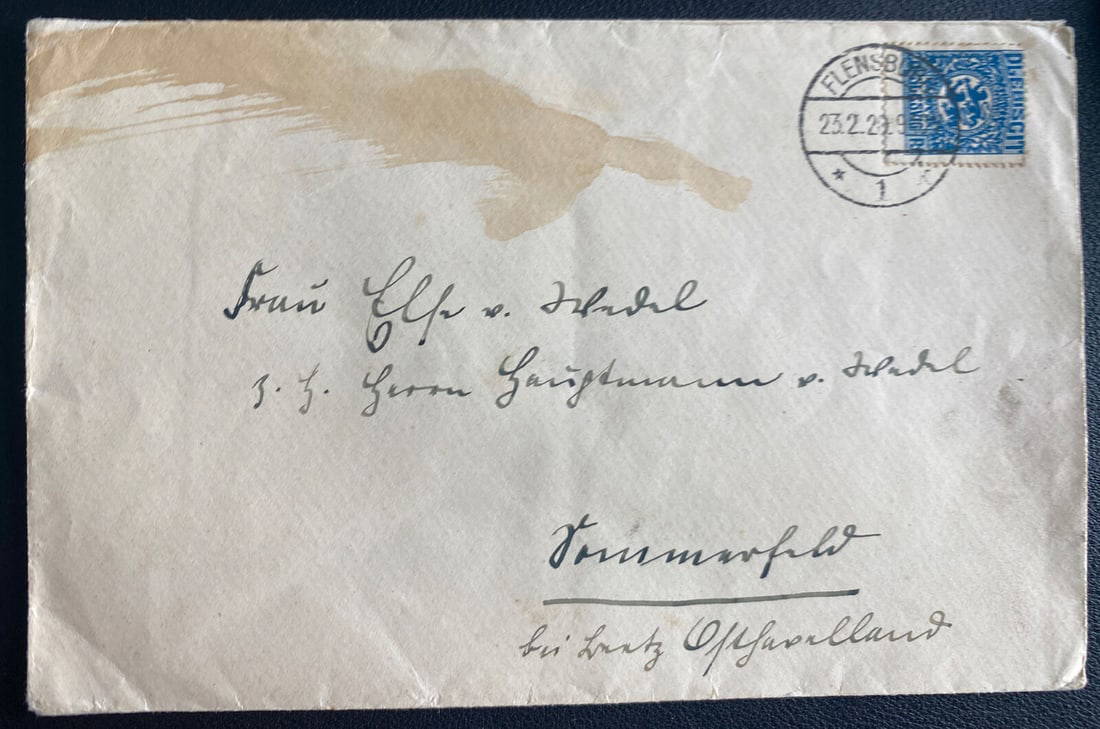 FLENSBU
23.2.20.9
* 1
PLEBISCIT
Frau Else v. Wedel
z. H. Herrn Hauptmann v. Wedel
Sommerfeld
bei Osthavelland